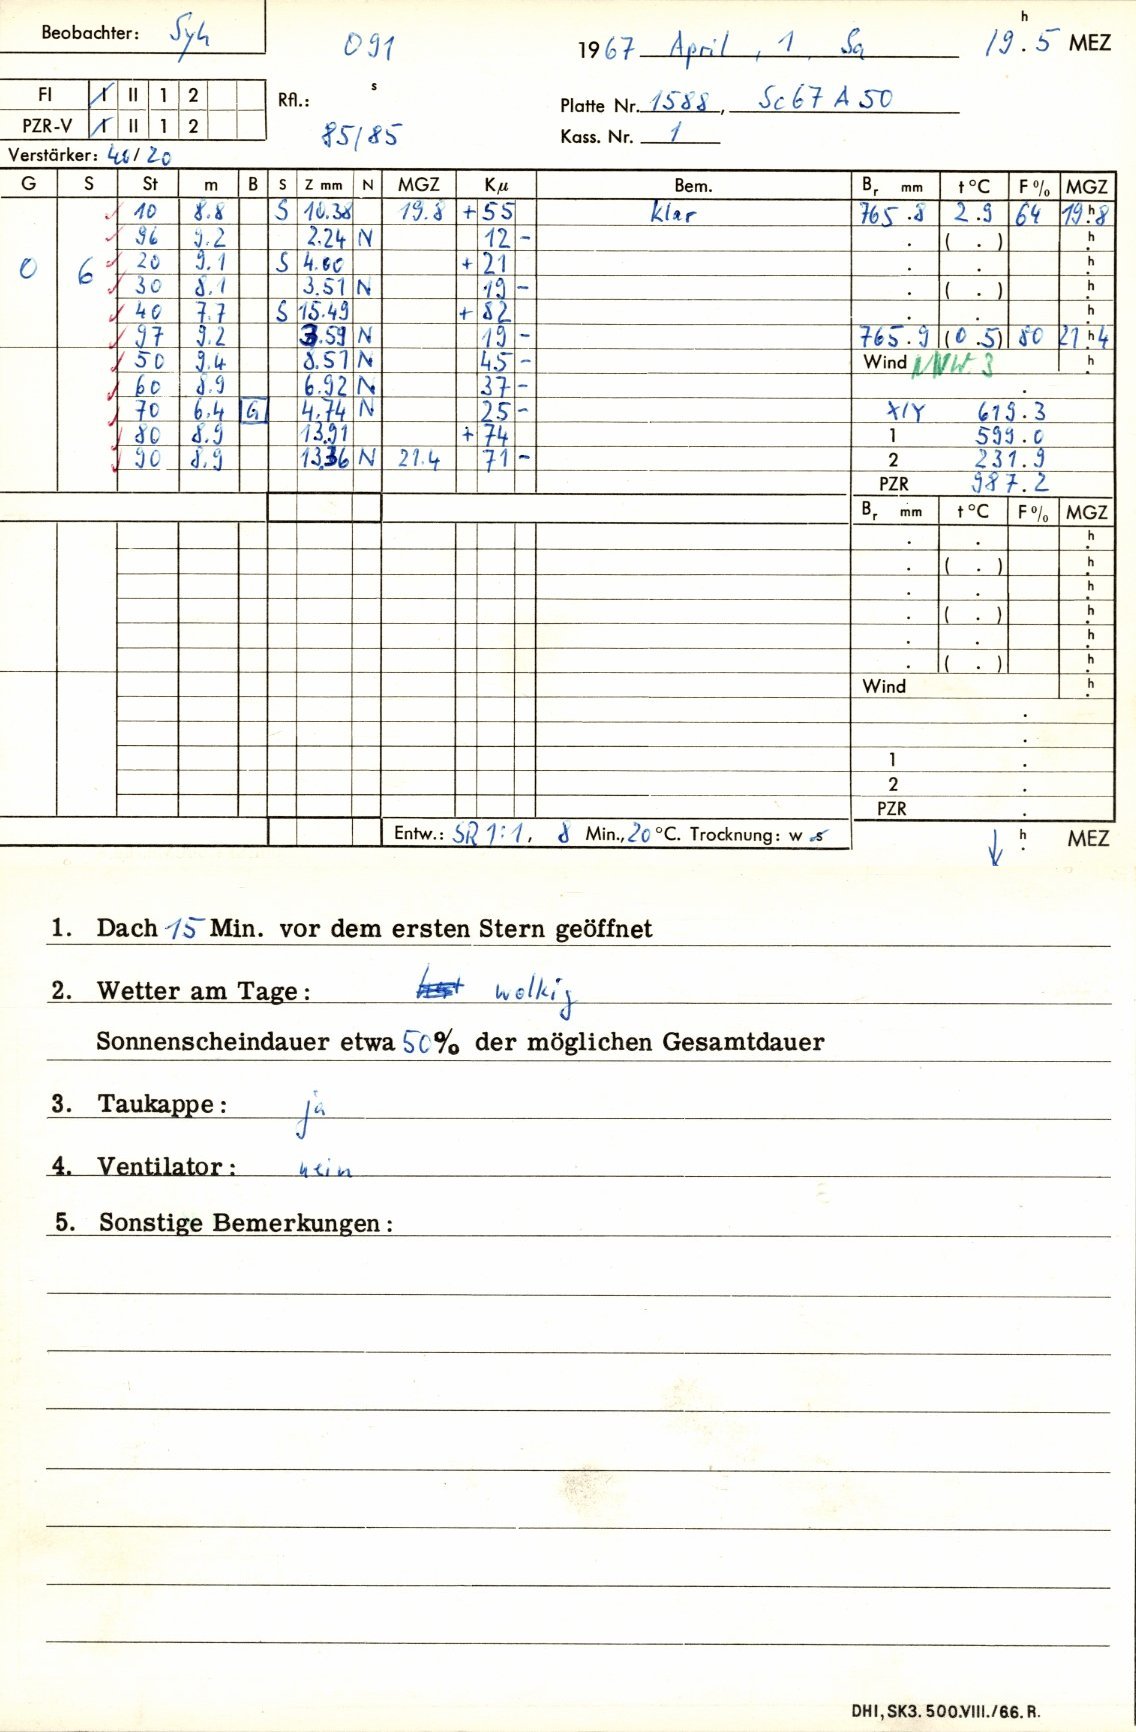 Beobachter: Syh
091
h
1967 April, 1. Sa 19.5 MEZ
FI I II 1 2
Rfl.: s
Platte Nr. 1588, Sc67 A 50
PZR-V I II 1 2
85/85
Kass. Nr. 1
Verstärker: 40/20
G S St m B S Z mm N MGZ Kµ Bem. Br mm t°C F% MGZ
10 8.8 S 10.38 19.8 +55 klar 765.8 2.9 64 19.h8
96 9.2 2.24 N 12 - . ( . ) h.
0 6 20 9.1 S 4.00 +21 . . h.
30 8.1 3.51 N 19 - . ( . ) h.
40 7.7 S 15.49 +82 . . h.
97 9.2 3.59 N 19 - 765.9 (0.5) 80 21.h4
50 9.4 8.51 N 45 - Wind NNW 3 h.
60 8.9 6.92 N 37 - .
70 6.4 G 4.74 N 25 - X/Y 619.3
80 8.9 13.91 +74 1 599.0
90 8.9 13.36 N 21.4 71 - 2 231.9
PZR 987.2
Br mm t°C F% MGZ
. . h.
. ( . ) h.
. . h.
. ( . ) h.
. . h.
. ( . ) h.
Wind h.
.
.
1 .
2 .
PZR .
Entw.: SR 1:1, 8 Min., 20 °C. Trocknung: w s
↓ h. MEZ
1. Dach 15 Min. vor dem ersten Stern geöffnet
2. Wetter am Tage: wolkig
Sonnenscheindauer etwa 50% der möglichen Gesamtdauer
3. Taukappe: ja
4. Ventilator: nein
5. Sonstige Bemerkungen:
DHI, SK3. 500.VIII./66. R.